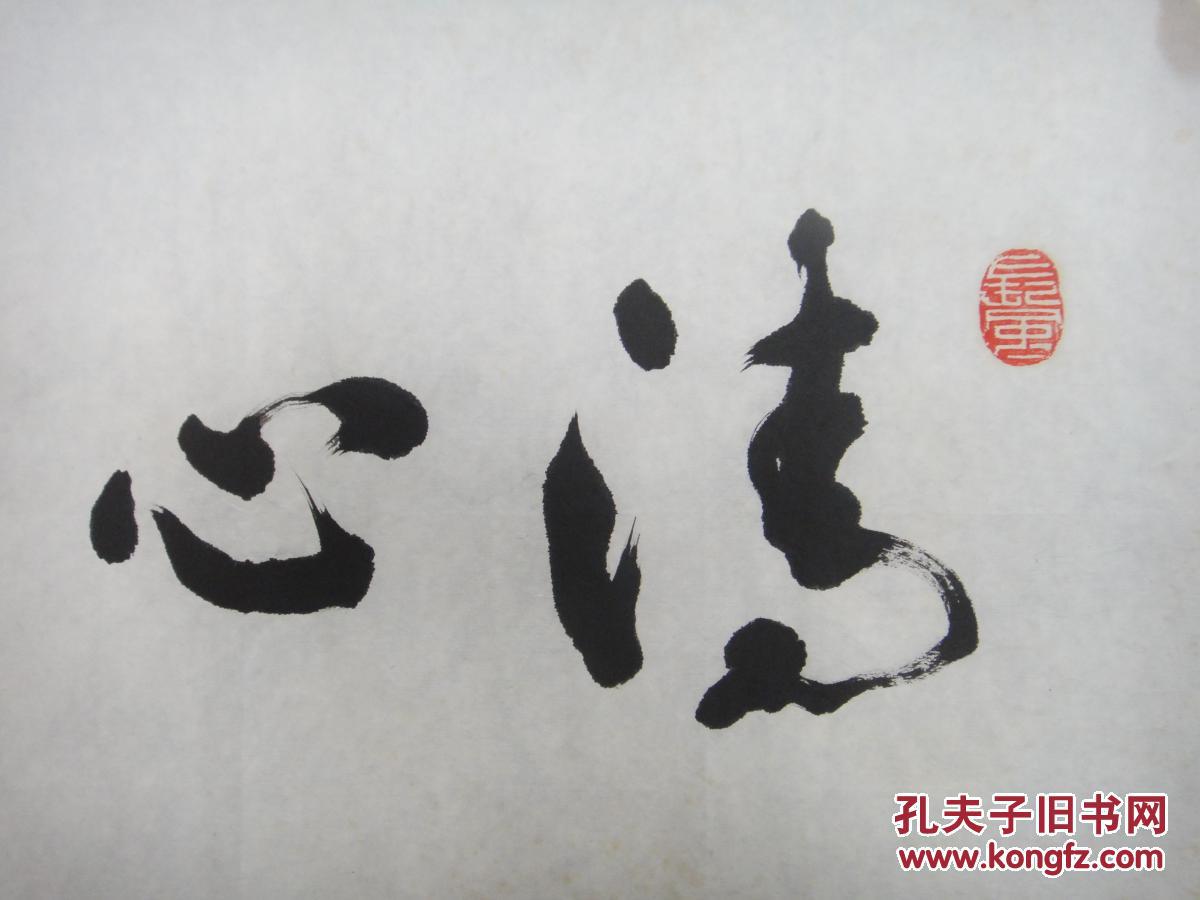 清心
孔夫子旧书网
www.kongfz.com